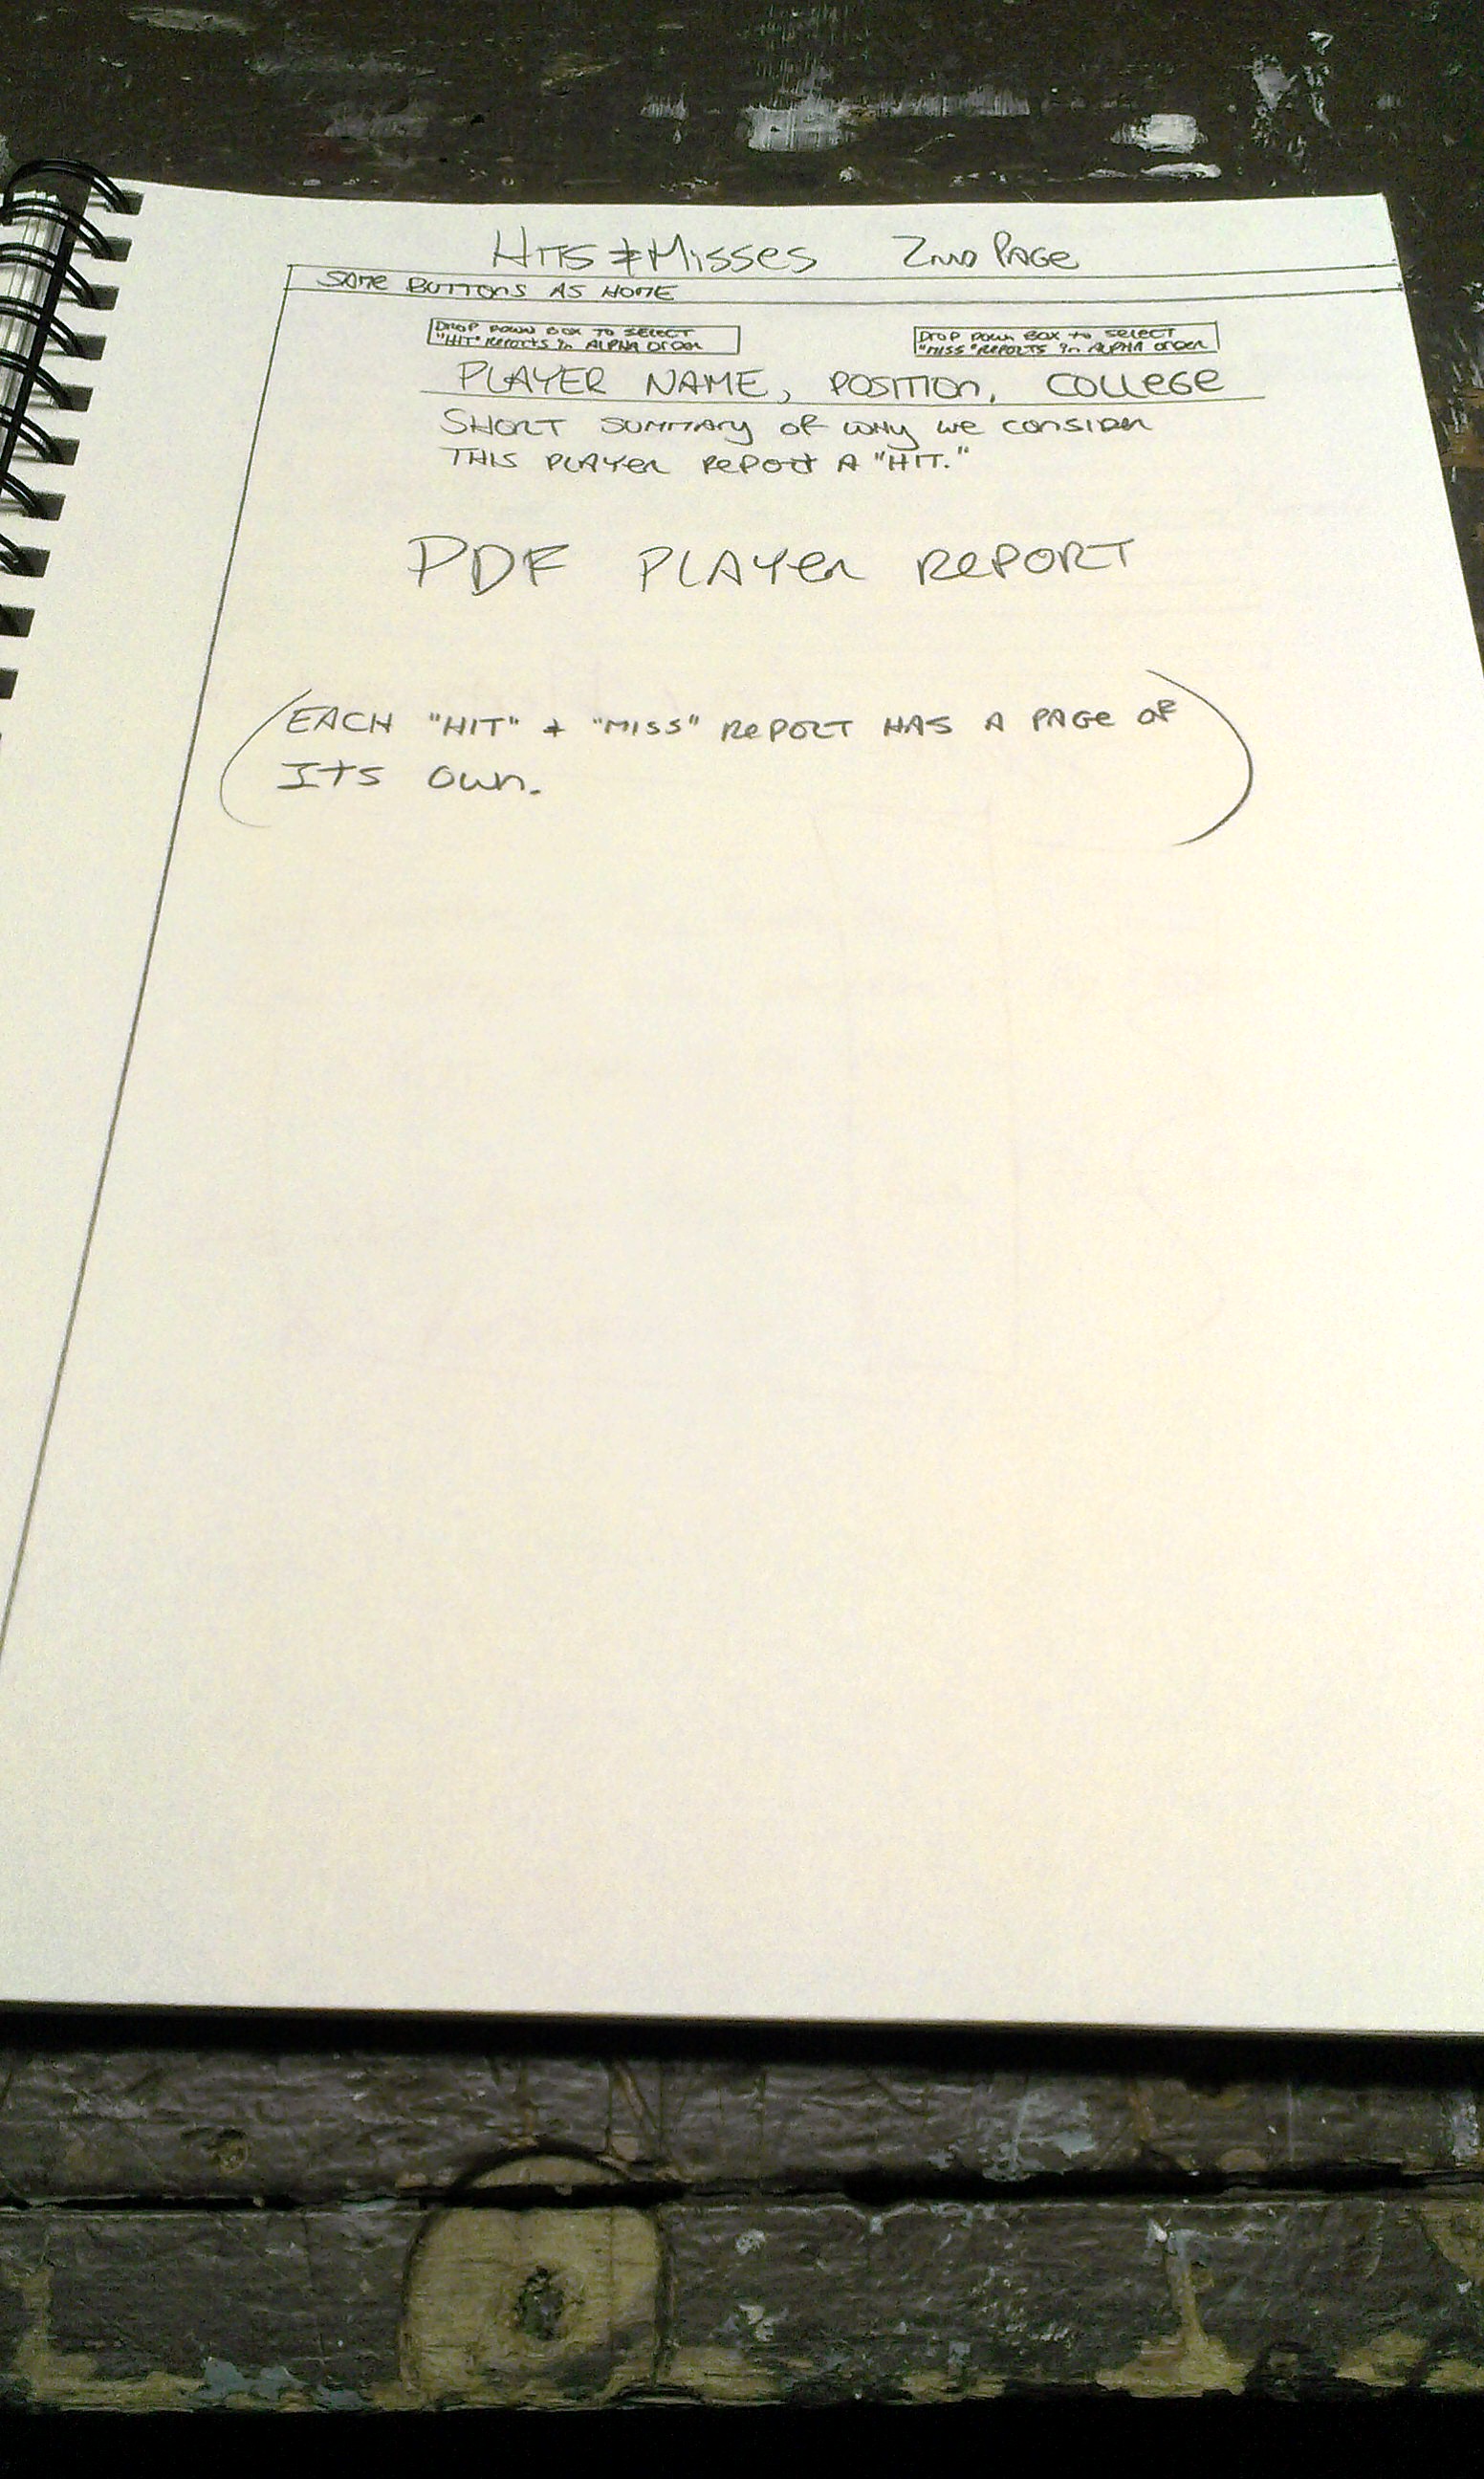 HITS & MISSES 2ND PAGE
SAME BUTTONS AS HOME
DROP DOWN BOX TO SELECT
"HIT" REPORTS IN ALPHA ORDER
DROP DOWN BOX TO SELECT
"MISS" REPORTS IN ALPHA ORDER
PLAYER NAME, POSITION, COLLEGE
SHORT SUMMARY OF WHY WE CONSIDER
THIS PLAYER REPORT A "HIT."
PDF PLAYER REPORT
(EACH "HIT" + "MISS" REPORT HAS A PAGE OF
ITS OWN.)